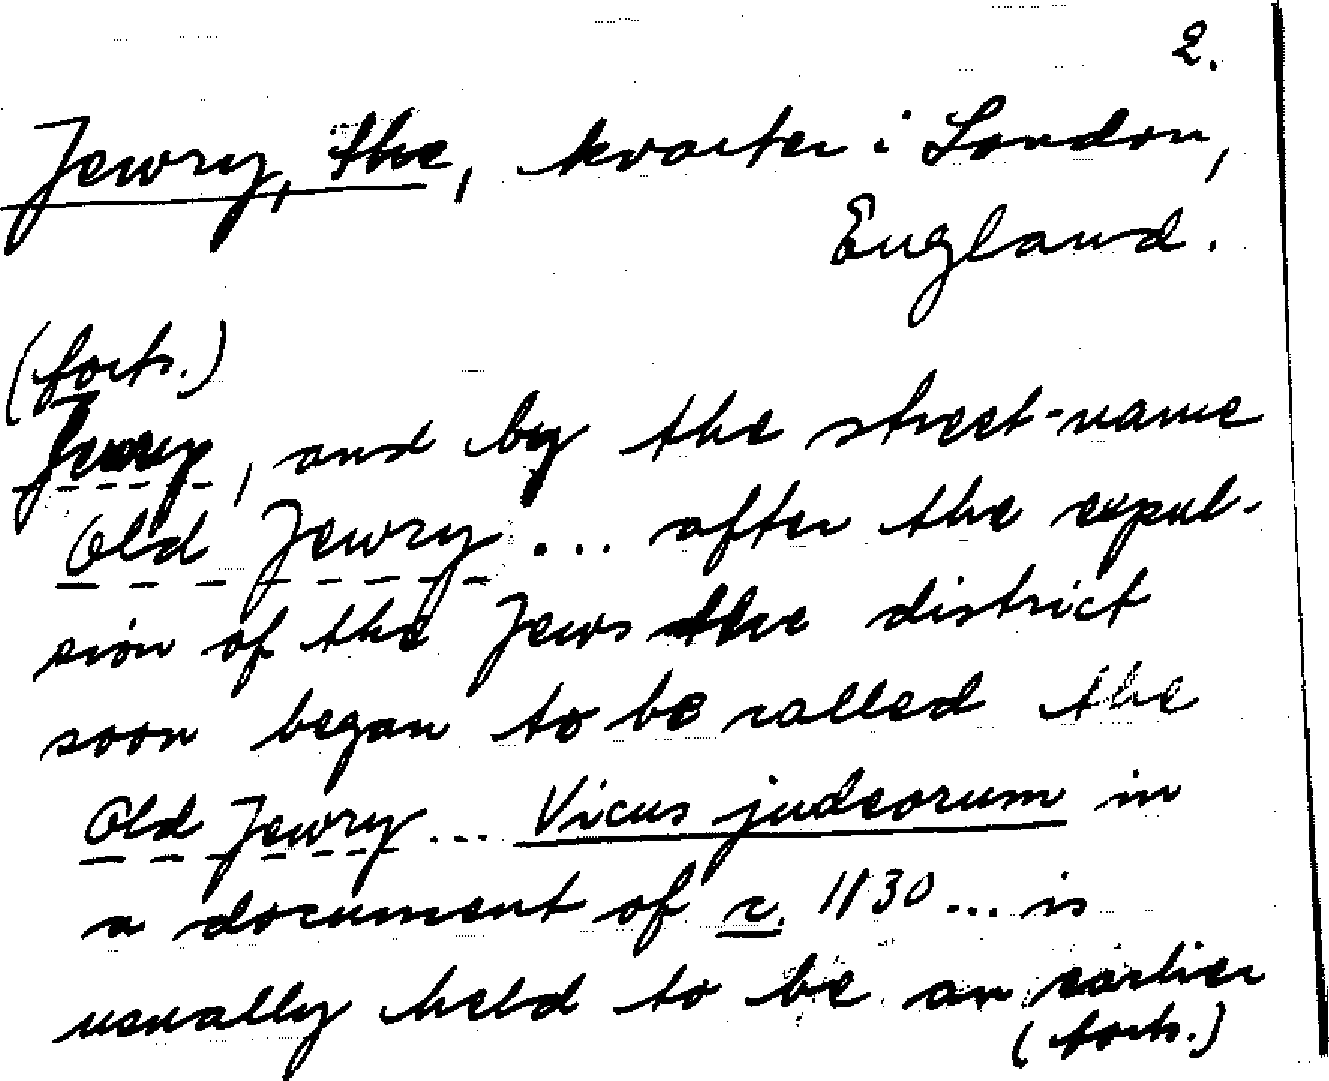 2.
Jewry, the, kvarter i London,
England.
(forts.)
Jewry, and by the street-name
Old Jewry ... after the expul-
sion of the Jews the district
soon began to be called the
Old Jewry ... Vicus judeorum in
a document of c. 1130 ... is
usually held to be an earlier
(forts.)